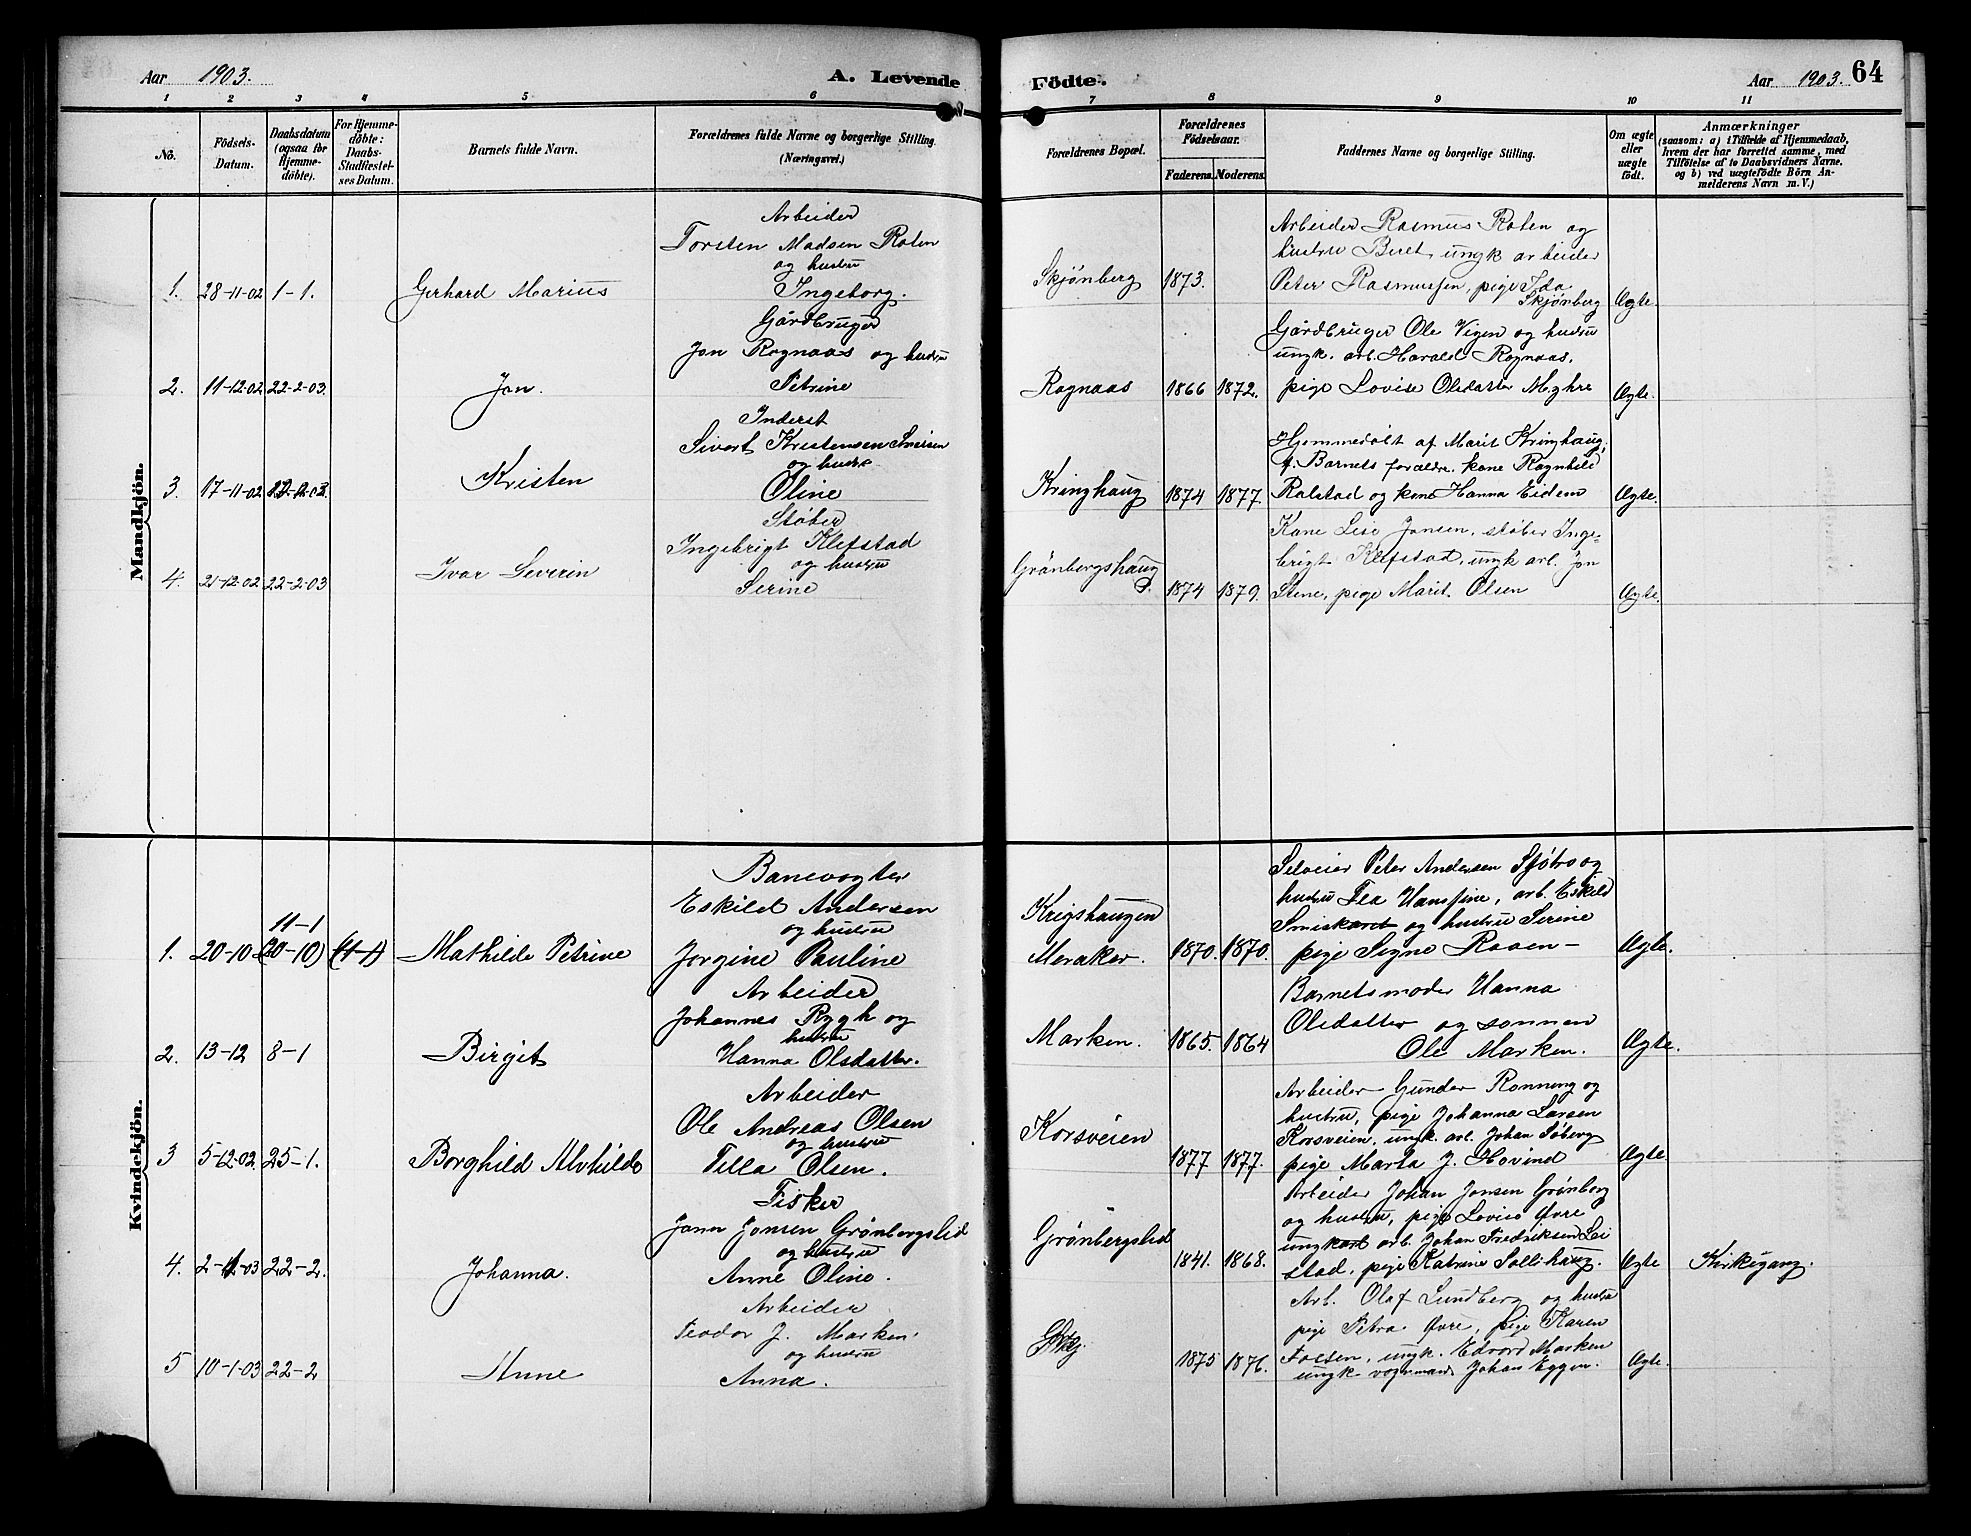 Aar 1903.
A. Levende
Födte.
Aar 1903. 64
1 2 3 4 5 6
7 8 9 10 11
No.
Födsels-
Datum.
Daabsdatum
(ogsaa for
Hjemme-
döbte).
For Hjemme-
döbte:
Daabs-
Stadfæstel-
ses Datum.
Barnets fulde Navn.
Forældrenes fulde Navne og borgerlige Stilling.
(Næringsvei.)
Forældrenes Bopæl.
Forældrenes
Födselsaar.
Faderens. Moderens.
Faddernes Navne og borgerlige Stilling.
Om ægte
eller
uægte
födt.
Anmærkninger
(saasom: a) i Tilfælde af Hjemmedaab,
hvem der har forrettet samme, med
Tilföielse af to Daabsvidners Navne.
og b) ved uægtefödte Börn An-
melderens Navn m. V.)
Mandkjön.
Arbeider
Torsten Madsen Roten
og hustru
1. 28-11-02 1-1. Gerhard Marius Ingeborg.
Skjønberg 1873.
Arbeider Rasmus Roten og
hustru Beret, ungk arbeider
Peter Rasmussen, pige Ida
Skjønberg Ægte.
Gårdbruger
Jon Rognaas og hustru
2. 11-12-02 22-2-03. Jon. Petrine
Rognaas 1866 1872.
Gårdbruger Ole Vigen og hustru
ungk. arb. Harald Rognaas,
pige Lovise Olsdatter Ægte.
Inderst
Sivert Kristensen
og hustru
3. 17-11-02 Kristen Oline
Kringhaug 1874 1877.
Hjemmedøbt af Marit Kringhaug,
f. Barnets forældre. kone Ragnhild
Ralstad og kone Hanna Eidem Ægte.
Støber
Ingebrigt Klefstad
og hustru
4. 21-12-02 22-2-03 Ivar Severin Serine
Grönbergshaug
1874 1879.
Kone Lise Jonsen, støber Inge-
brigt Klefstad, ungk arb. Jon
Stene, pige Marit. Olsen Ægte.
Kvindekjön.
Banevogter
Eskild Andersen
og hustru
11-1
1. 20-10 (20-10) (11-1) Mathilde Petrine Jorgine Pauline
Krigshaugen
Meraker. 1870. 1870.
Selveier Peter Andersen og
hustru Tea Hansine, arb. Eskild
og hustru Serine
pige Signe Raaen- Ægte.
Arbeider
Johannes Rygh og
hustru
2. 13-12 8-1 Birgit Hanna Olsdatter.
Marken. 1865. 1864
Barnets moder Hanna
Olsdatter og sønnen
Ole Marken. Ægte.
Arbeider
Ole Andreas Olsen
og hustru
3 5-12-02 25-1. Borghild Alvhilde Tella Olsen.
Korsveien 1877 1877.
Arbeider Gunder Rønning og
hustru, pige Johanna Larsen
Korsveien, ungk. arb. Johan Søberg
pige Marta J. Hovind Ægte
Fisker
Jonsen Grønbergslid
og hustru
4. 22-2. Johanna. Anne Oline.
Grønbergslid 1841. 1868.
Arbeider Johan Jonsen Grønberg
og hustru, pige Lovise Øvre
ungkarl arb. Johan Fredriksen Lei
stad, pige Katrine Sollihaug. Ægte Kirkegang.
Arbeider
Teodor J. Marken.
og hustru
5 10-1-03 22-2 Anne Anna.
1875 1876.
Arb. Olaf Lundberg og hustru
pige Petra Øvre, pige Karen
ungk. Edvard Marken
ungk vognmand Johan Eggen. Ægte.